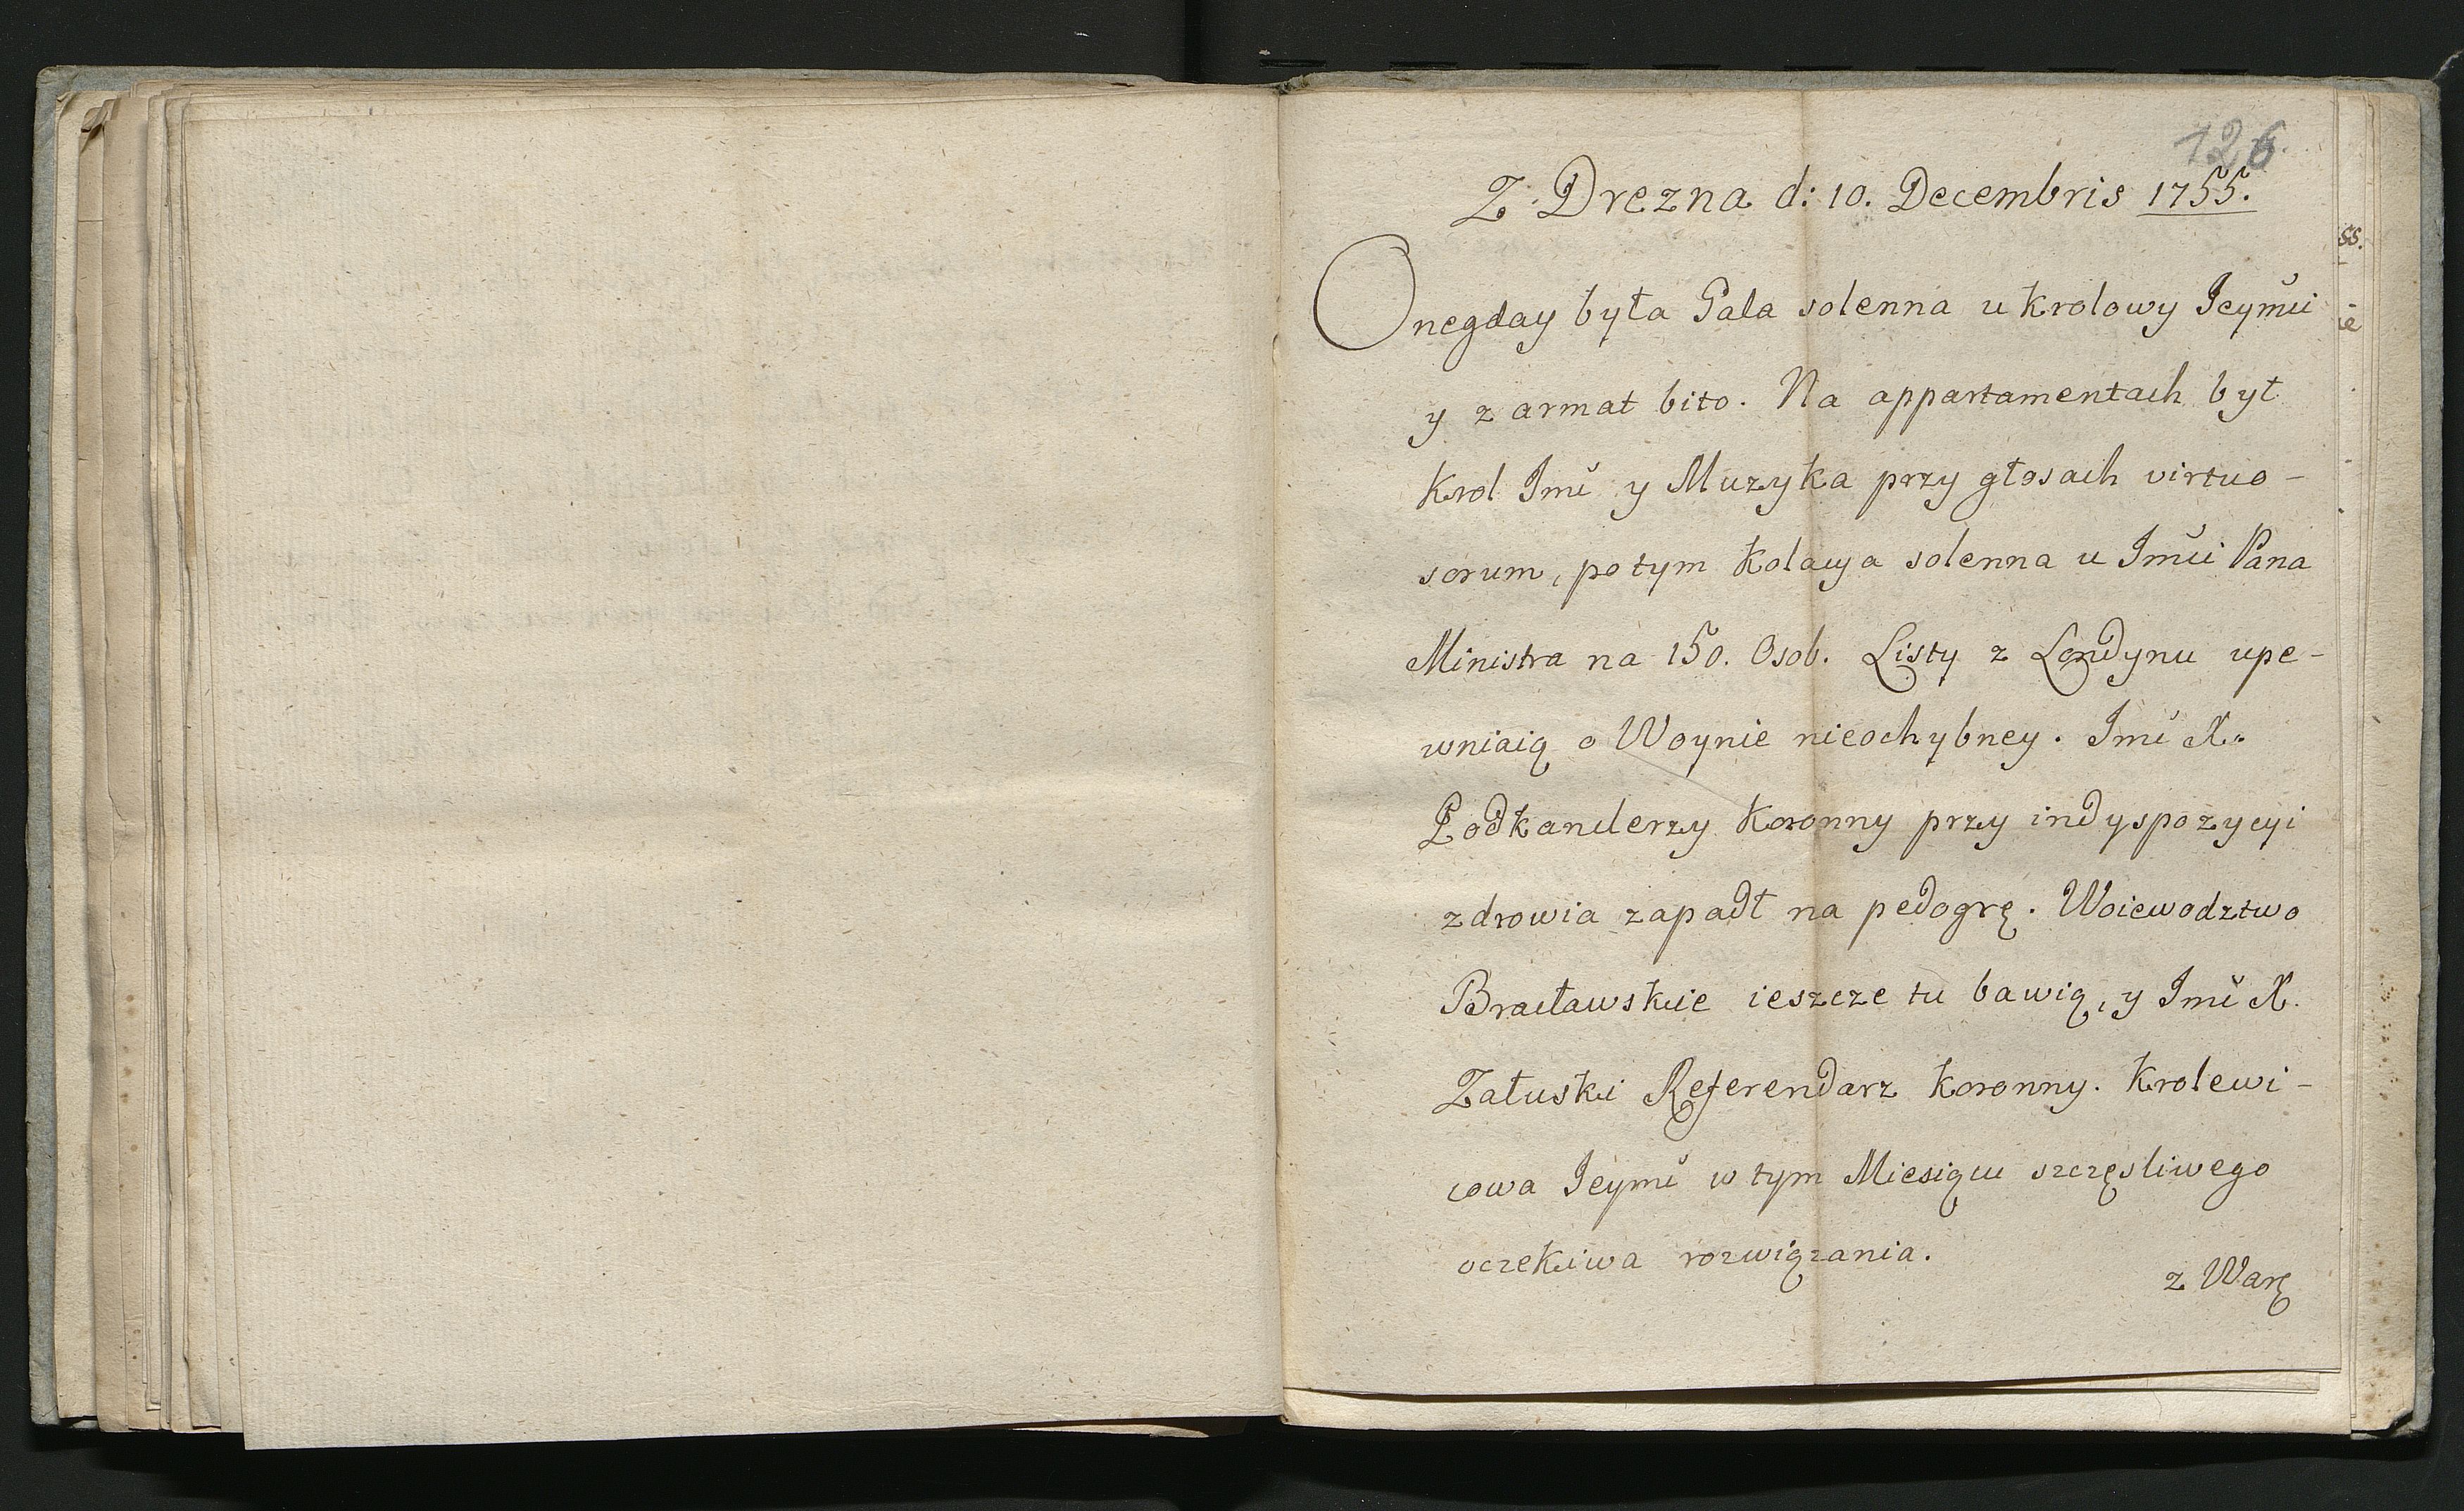 126.
Z Drezna d: 10. Decembris 1755.
Onegday była Gala solenna u Krolowy Jeymći
y z armat bito. Na appartamentach był
Krol Jmć y Muzyka przy głosach virtuo-
sorum, potym Kolacya solenna u Jmći Pana
Ministra na 150. Osob. Listy z Londynu upe-
wniaią o Woynie nieochybney. Jmć X.
Podkanclerzy Koronny przy indyspozycyi
zdrowia zapadł na pedogrę. Woiewodztwo
Bracławskie ieszcze tu bawią, y Jmć X.
Załuski Referendarz Koronny. Krolewi-
cowa Jeymć w tym Miesiącu szczęsliwego
oczekiwa rozwiązania.
z Warę